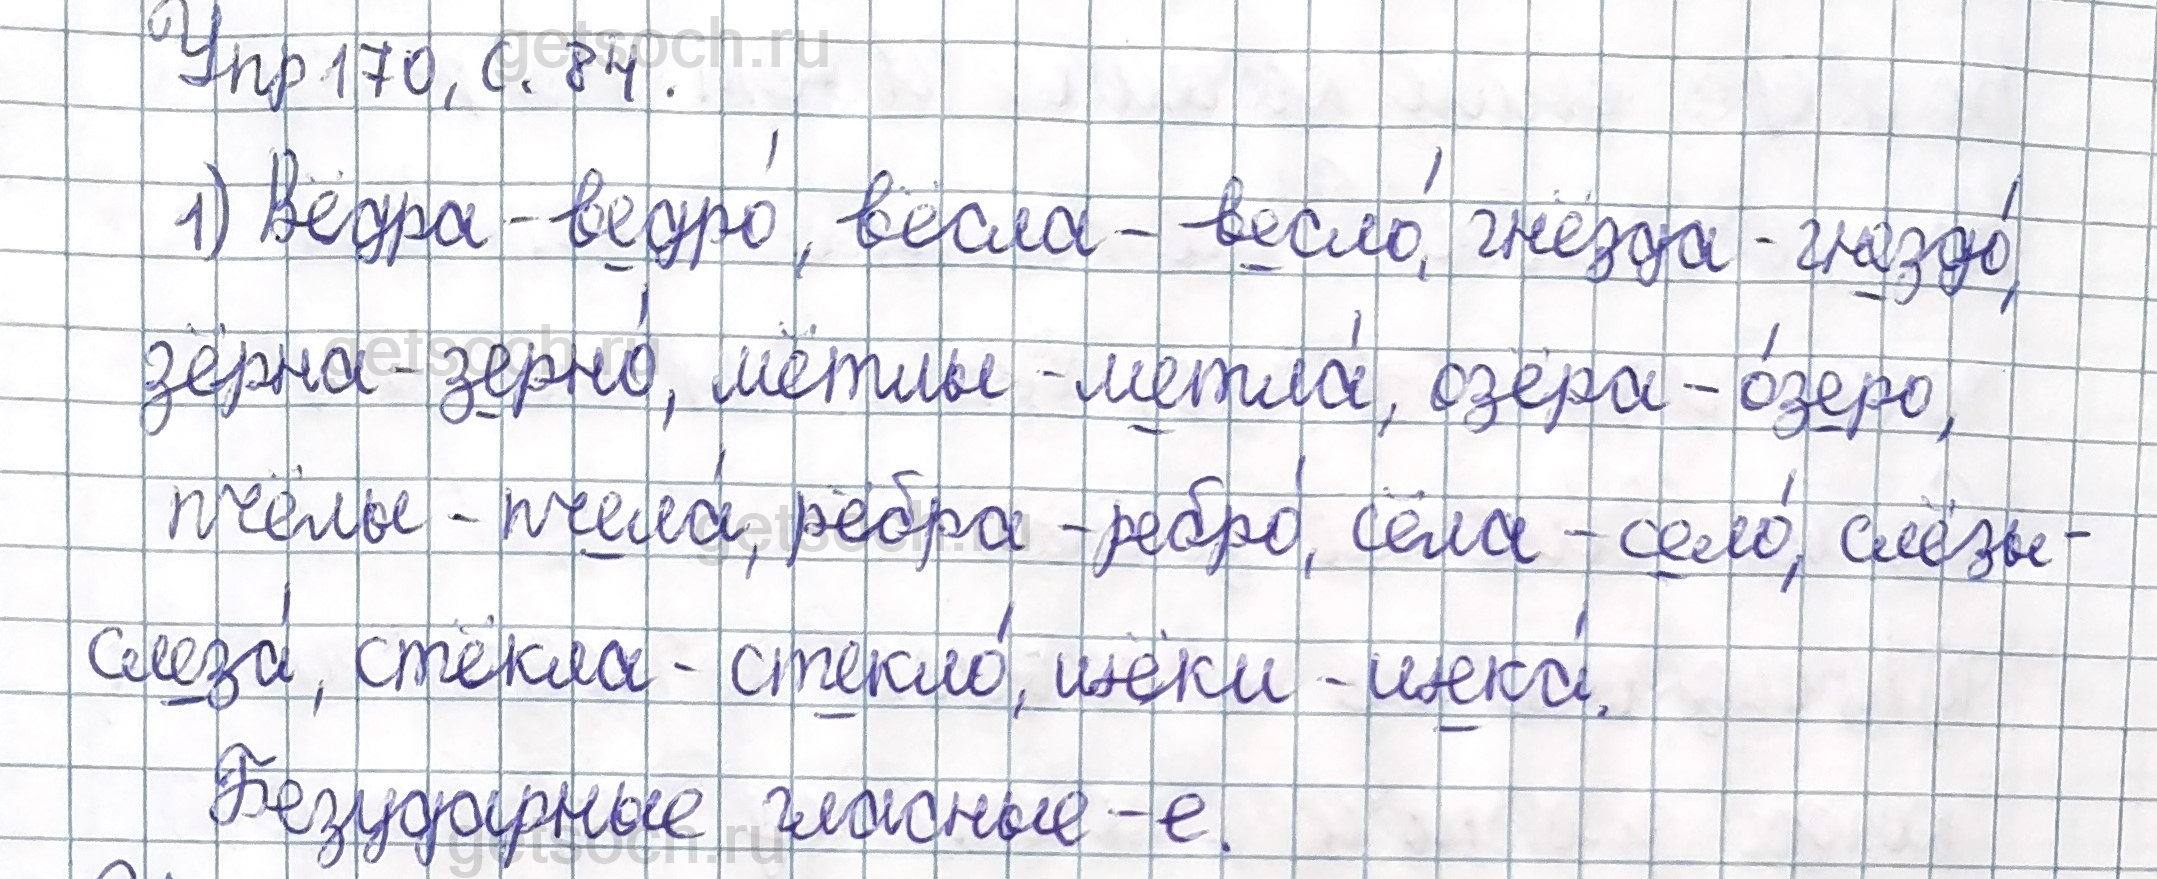 Упр 170, с. 84.
1) Вёдра - ведро́, вёсла - весло́, гнёзда - гнездо́,
зёрна - зерно́, мётлы - метла́, озёра - о́зеро,
пчёлы - пчела́, рёбра - ребро́, сёла - село́, слёзы -
слеза́, стёкла - стекло́, щёки - щека́.
Безударные гласные - е.
getsoch.ru
getsoch.ru
getsoch.ru
getsoch.ru